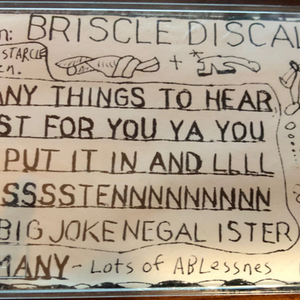 n: BRISCLE DISCAL
STARCLE
en.
ANY THINGS TO HEAR
ST FOR YOU YA YOU
PUT IT IN AND LLLL
SSSSSTENNNNNNNNN
BIG JOKENEGAL ISTER
MANY - Lots of ABLessnes